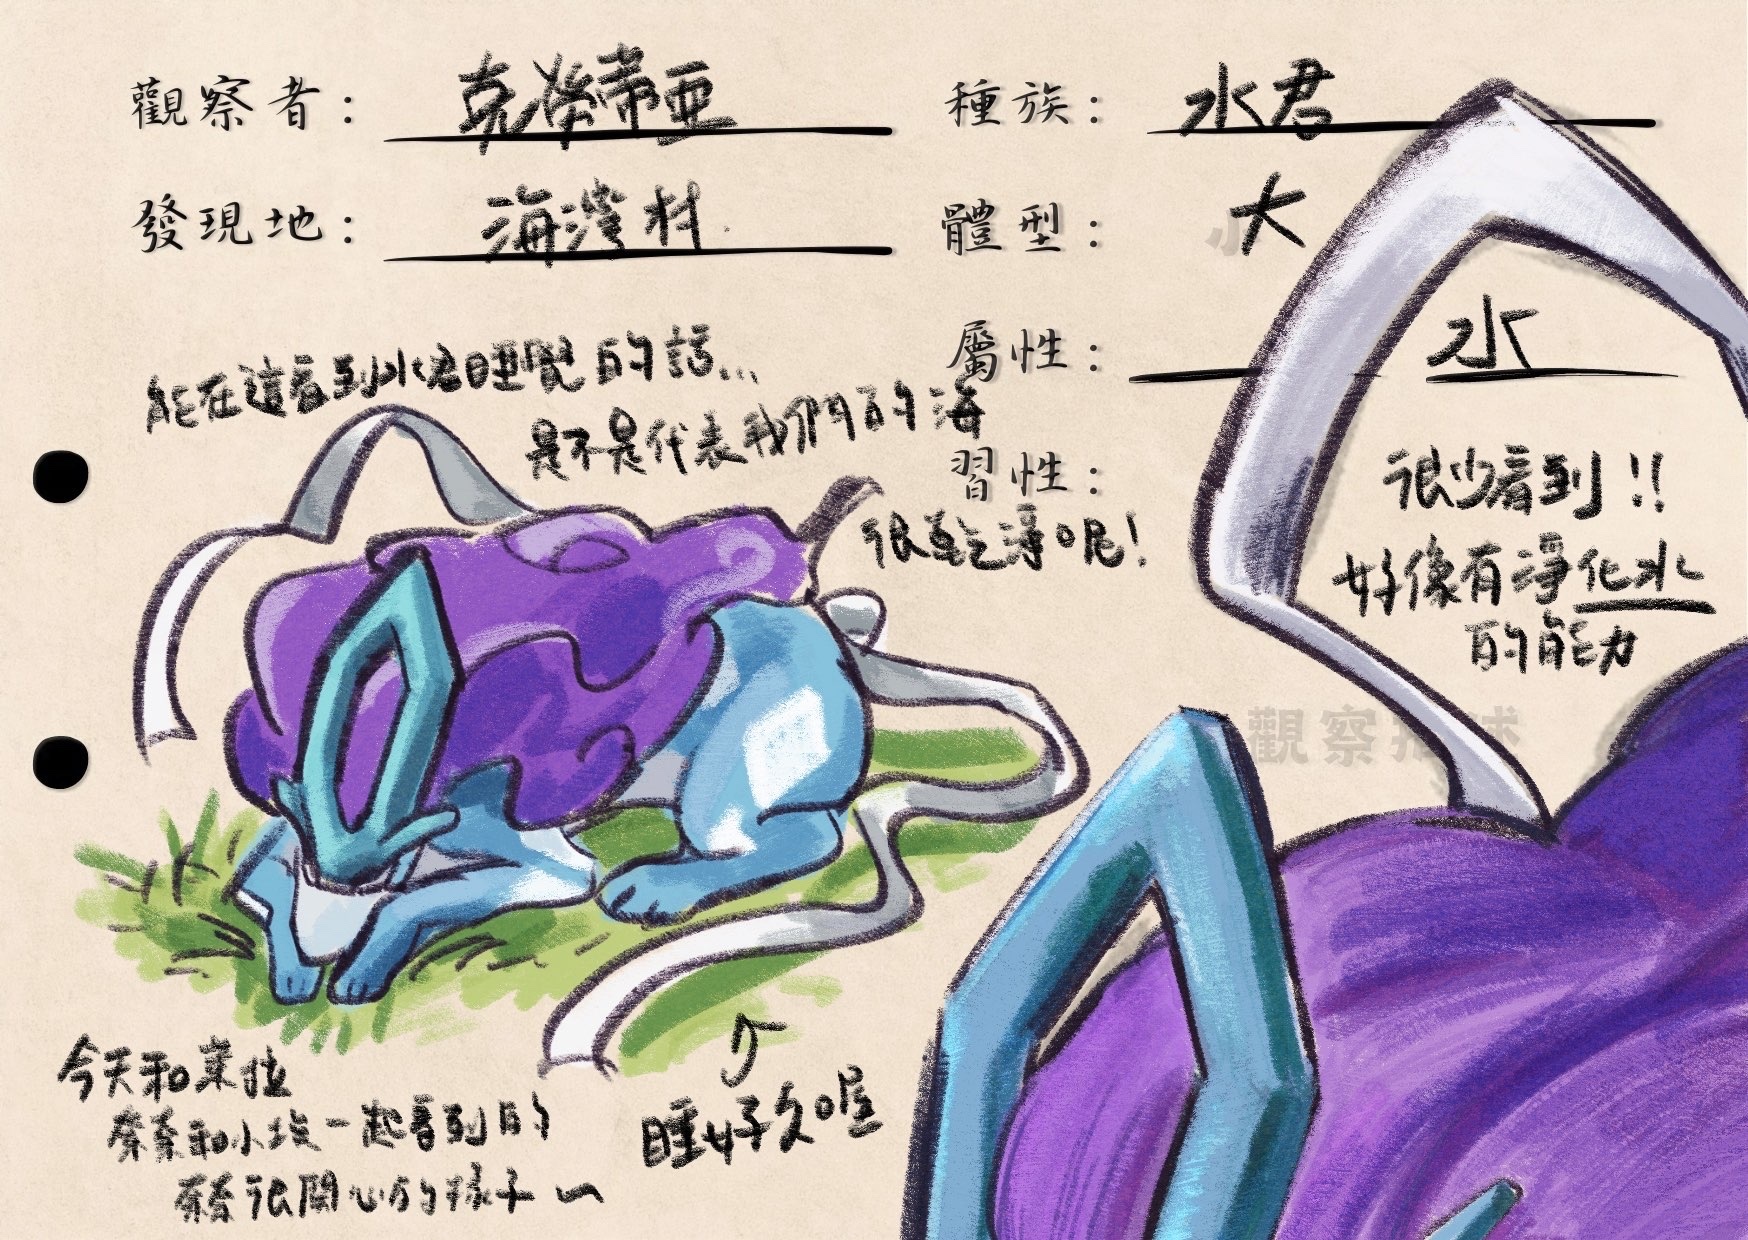 觀察者： 克勞蒂亞
種族： 水君
發現地： 海灣村
體型： 大
屬性： 水
能在這看到水君睡覺的話...
是不是代表我們的海
很乾淨呢！
習性：
很少看到!!
好像有淨化水
的能力
觀察
睡好久喔
今天和
和小 一起看到的
很開心的樣子～